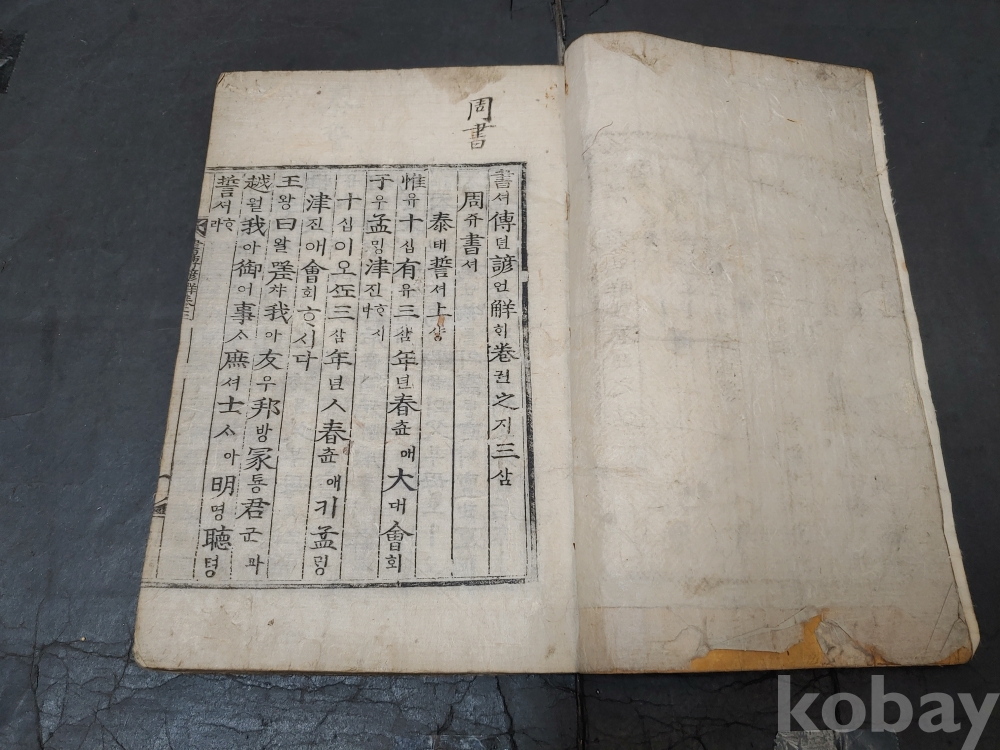 周書
書셔傳뎐諺언觧ᄒᆡ卷권之지三삼
周쥬書셔
泰태誓셔上샹
惟유十십有유三삼年년春츈애大대會회
于우孟ᄆᆡᆼ津진ᄒᆞ시다
十십이오ᄯᅩ三삼年년人春츈애키孟ᄆᆡᆼ
津진애會회ᄒᆞ시다
王왕曰왈嗟차我아友우邦방冢통君군과
越월我아御어事ᄉᆞ庶셔士ᄉᆞ아明명聽텽
誓셔ᄒᆞ라
kobay